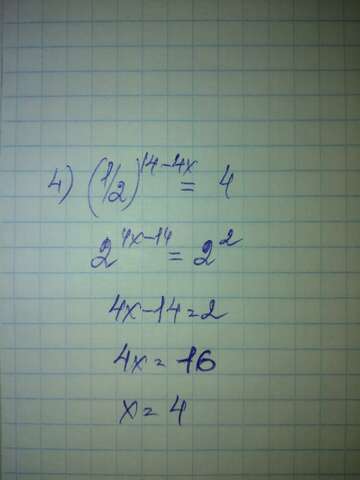 4) (1/2)^14-4x = 4
2^4x-14 = 2^2
4x-14=2
4x=16
x=4